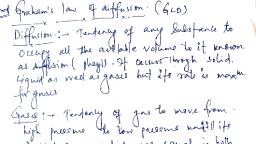 Graham's law of diffusion. (GLD)
Diffusion :- Tendency of any Substance to
occupy all the available volume to it known
as diffusion (phego). It occurs through solid.
liquid as well as gases but its rate is maxm
for gases
Gases :- Tendency of gas to move from
high pressure to low pressure untill its